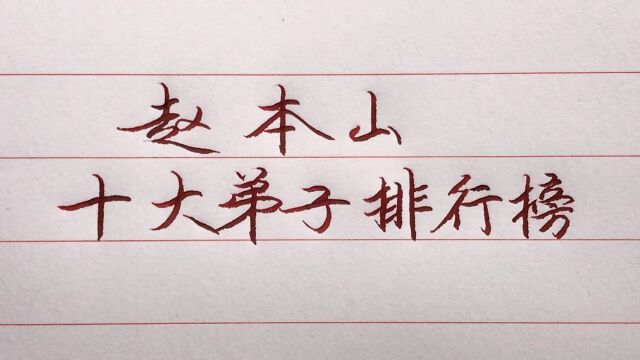 赵本山
十大弟子排行榜